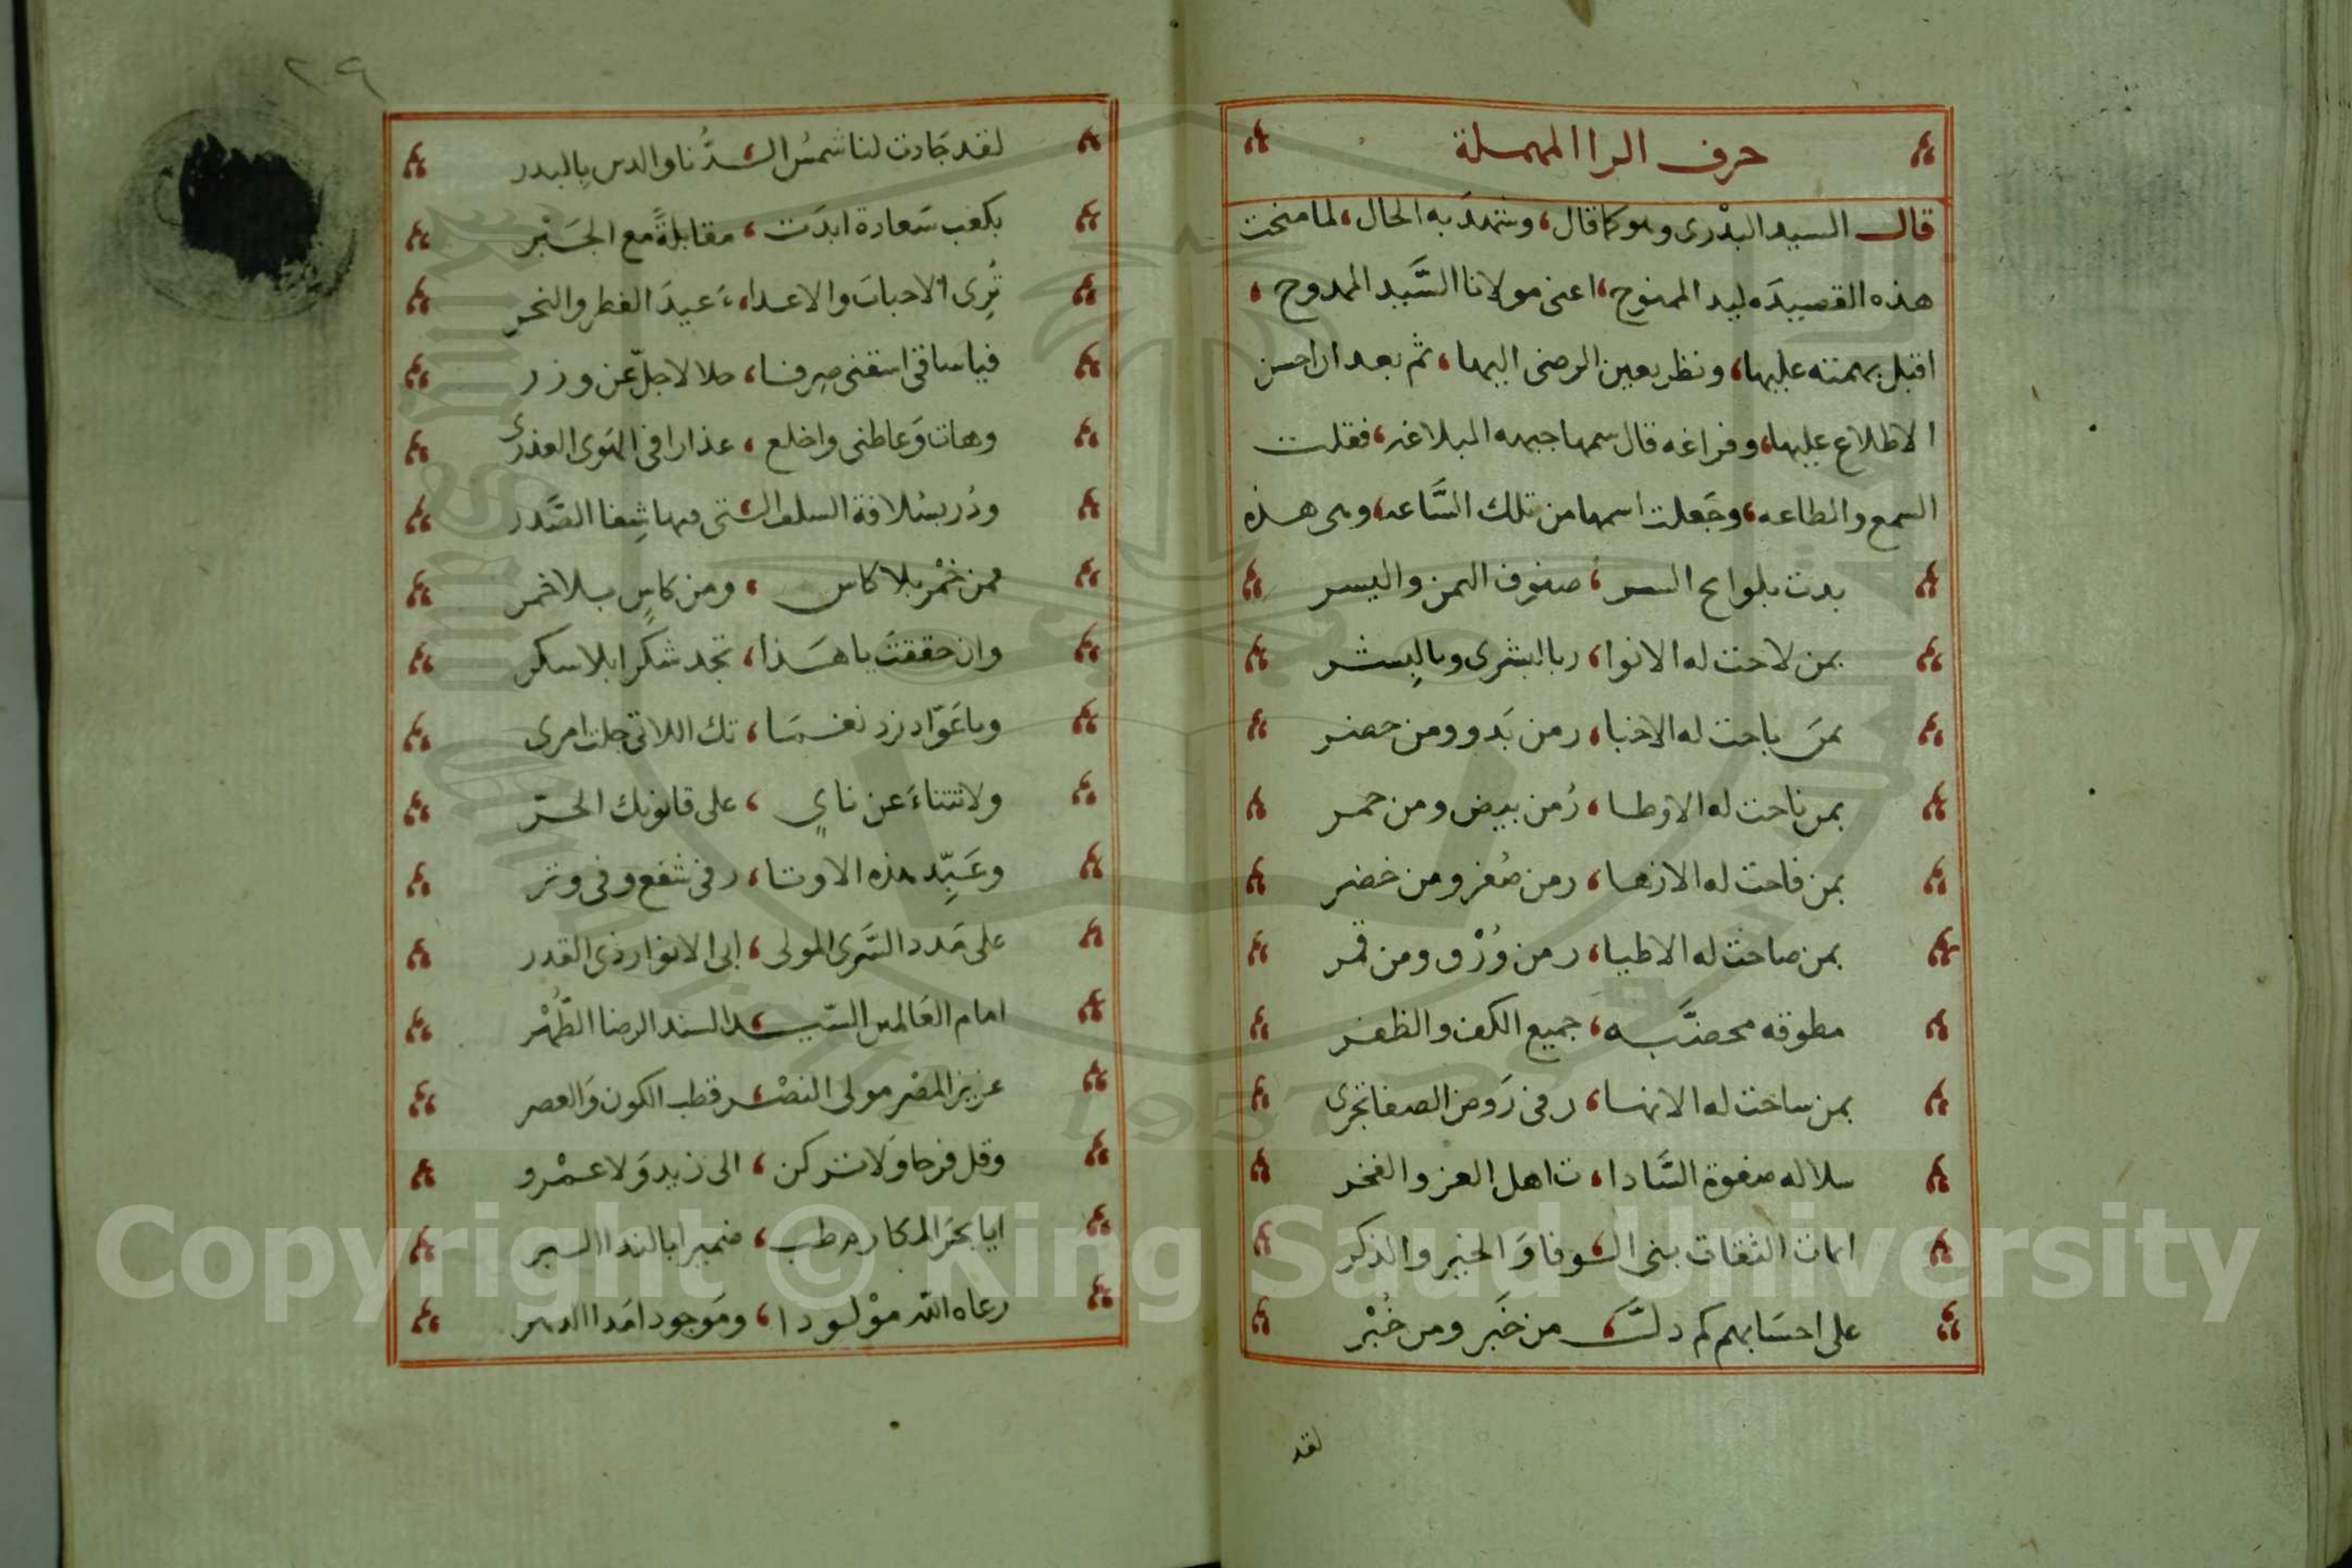 حرف الرا المهملة
قال السيد البدرى وهو كما قال، وشهدَ به الحال، لما منحت
هذه القصيدَه ليد الممنوح، اعنى مولانا السَّيد الممدوح،
اقبل بهمته عليها، ونظر بعين الرضى اليها، ثم بعد ان احسن
الاطلاع عليها، وفراغه قال سمها جبهه البلاغه، فقلت
السمع والطاعه، وجَعلت اسمها من تلك السَّاعه، وهى هذه
بدت بلوايح السر، صفوف اليمن واليسر
بمن لاحت له الانوا، ر بالبشرى وبالبِشر
بمَن باحت له الاخبا، ر من بَدو ومن حضر
بمن ناحت له الاوطا، رُ من بيض ومن حمر
بمن فاحت له الازها، ر من صُفر ومن خضر
بمن صاحَت له الاطيا، ر من وُرْق ومن قمر
مطوقه مخضَّبه، جميع الكف والظفر
بمن ساخت له الانها، ر فى رَوض الصفا تجرى
سلاله صفوة السَّادا، ت اهل العز والفخر
اماث الثقات بنى الـ، ـوفا وَالخير والذكر
على احسَابهم كم دلَّت، من خَبَر ومن خُبْر
لقد
٢٩
لقد جَادت لنا شمسُ الـ، ـدُّنا والدين بالبدر
بكعب سَعادة ابدَت، مقابلةً مع الجَبْر
تُرِى الاحبابَ والاعدا، ءَ عيدَ الفطر والنحر
فيا ساقى اسقنى صِرفا، حلالا جلّ عن وزر
وهات وَعاطنى واخلع، عذارا فى الهَوى العذرى
ودُر بسُلافة السلف الـ، ـتى فيها شِفا الصَّدر
فمن خَمْر بلا كاس، ومن كاسٍ بلا خمر
وان حققتَ يا هَذا، تجد شكرا بلا سكر
ويا عَوّاد زد نغمَا، تك اللاتى جلت امرى
ولا تتناءَ عن نايٍ، على قانونك الحرّ
وعَبِّد هذه الاوتا، ر فى شفع وفى وتر
على مَدد السَّرى المولى، ابى الانوار ذى القدر
امام العَالمين السّيـ، ـد السند الرضا الطُّهْر
عزيز المصْر مولى النصْـ، ـر قطب الكون وَالعصر
وقل فرحا وَلا تركن، الى زيد وَلا عمْرو
ايا بحرَ المكارم طب، ضميرا بالندا السر
رعاه اللّه موْلودا، ومَوجودا مَدا الدهر